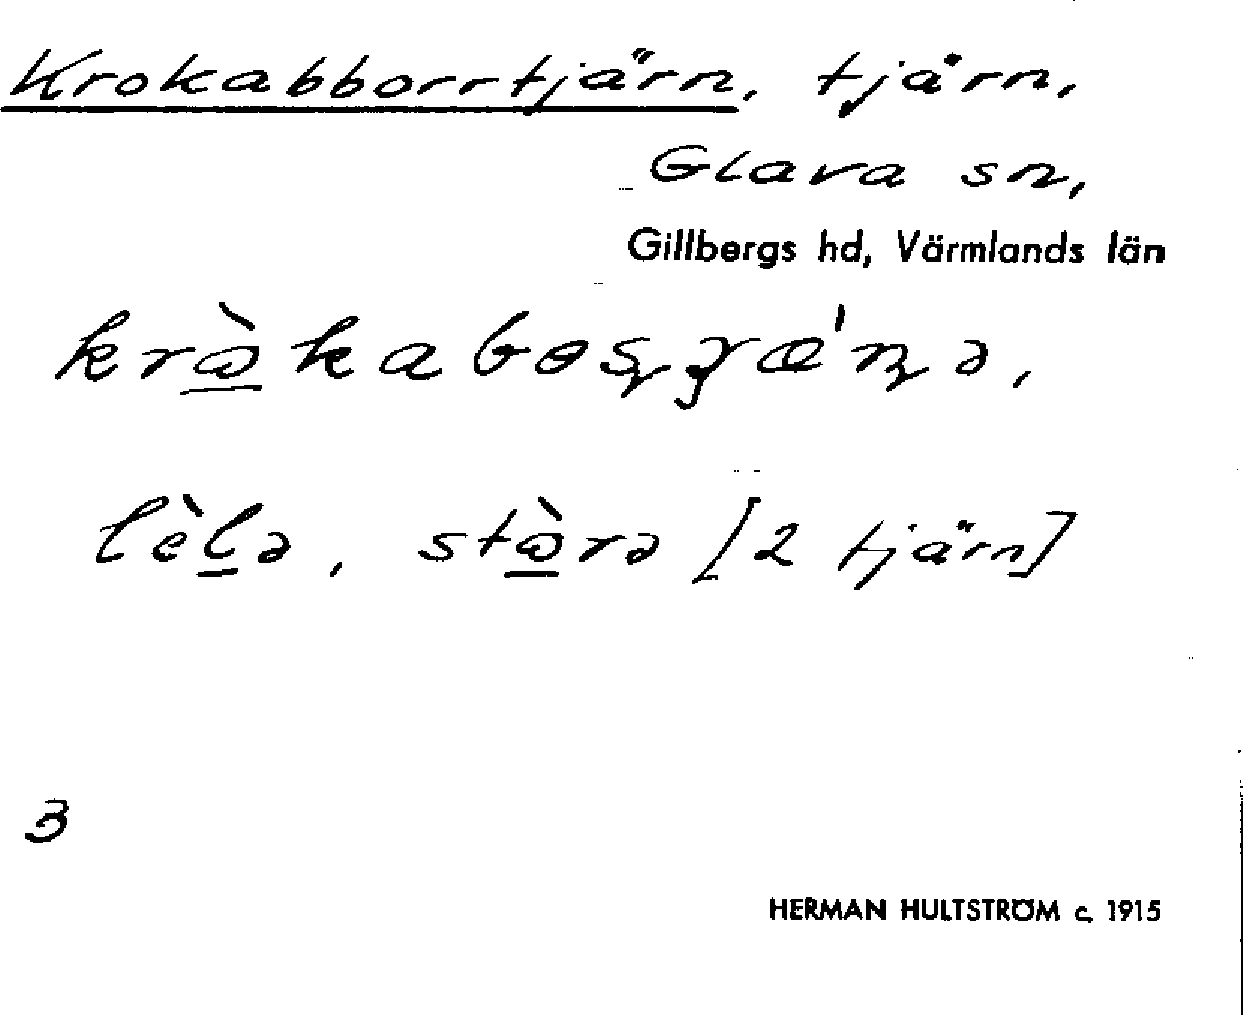 Krokabborrtjärn, tjärn,
Glava sn,
Gillbergs hd, Värmlands län
lèlə, stòrə [2 tjärn]
3
HERMAN HULTSTRÖM c. 1915